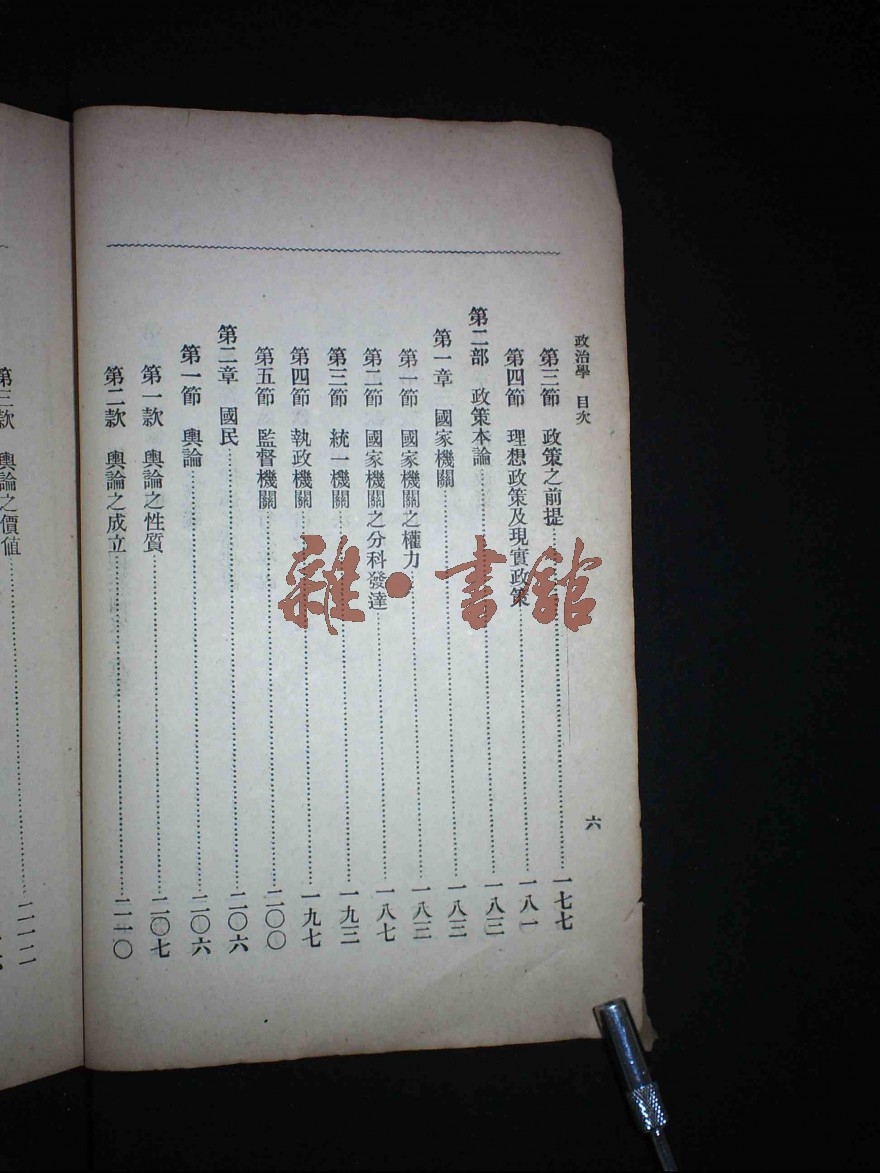 政治學 目次
六
第三節 政策之前提 一七七
第四節 理想政策及現實政策 一八一
第二部 政策本論 一八三
第一章 國家機關 一八三
第一節 國家機關之權力 一八三
第二節 國家機關之分科發達 一八七
第三節 統一機關 一九三
第四節 執政機關 一九七
第五節 監督機關 二〇〇
第二章 國民 二〇六
第一節 輿論 二〇六
第一款 輿論之性質 二〇七
第二款 輿論之成立 二一〇
第三款 輿論之價値 二一二
雜·書館